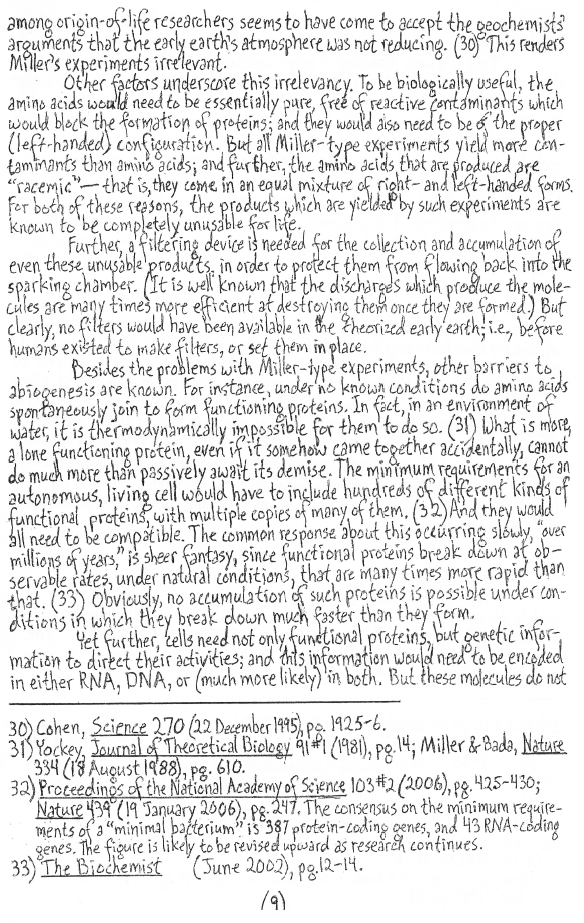 among origin-of-life researchers seems to have come to accept the geochemists'
arguments that the early earth's atmosphere was not reducing. (30) This renders
Miller's experiments irrelevant.
Other factors underscore this irrelevancy. To be biologically useful, the
amino acids would need to be essentially pure, free of reactive contaminants which
would block the formation of proteins; and they would also need to be of the proper
(left-handed) configuration. But all Miller-type experiments yield more con-
taminants than amino acids; and further, the amino acids that are produced are
"racemic"— that is, they come in an equal mixture of right- and left-handed forms.
For both of these reasons, the products which are yielded by such experiments are
known to be completely unusable for life.
Further, a filtering device is needed for the collection and accumulation of
even these unusable products, in order to protect them from flowing back into the
sparking chamber. (It is well known that the discharges which produce the mole-
cules are many times more efficient at destroying them once they are formed.) But
clearly, no filters would have been available in the theorized early earth; i.e., before
humans existed to make filters, or set them in place.
Besides the problems with Miller-type experiments, other barriers to
abiogenesis are known. For instance, under no known conditions do amino acids
spontaneously join to form functioning proteins. In fact, in an environment of
water, it is thermodynamically impossible for them to do so. (31) What is more,
a lone functioning protein, even if it somehow came together accidentally, cannot
do much more than passively await its demise. The minimum requirements for an
autonomous, living cell would have to include hundreds of different kinds of
functional proteins, with multiple copies of many of them. (32) And they would
all need to be compatible. The common response about this occurring slowly, "over
millions of years," is sheer fantasy, since functional proteins break down at ob-
servable rates, under natural conditions, that are many times more rapid than
that. (33) Obviously, no accumulation of such proteins is possible under con-
ditions in which they break down much faster than they form.
Yet further, cells need not only functional proteins, but genetic infor-
mation to direct their activities; and this information would need to be encoded
in either RNA, DNA, or (much more likely) in both. But these molecules do not
30) Cohen, Science 270 (22 December 1995), pg. 1925-6.
31) Yockey, Journal of Theoretical Biology 91#1 (1981), pg. 14; Miller & Bada, Nature
334 (18 August 1988), pg. 610.
32) Proceedings of the National Academy of Science 103#2 (2006), pg. 425-430;
Nature 439 (19 January 2006), pg. 247. The consensus on the minimum require-
ments of a "minimal bacterium" is 387 protein-coding genes, and 43 RNA-coding
genes. The figure is likely to be revised upward as research continues.
33) The Biochemist (June 2002), pg. 12-14.
(9)